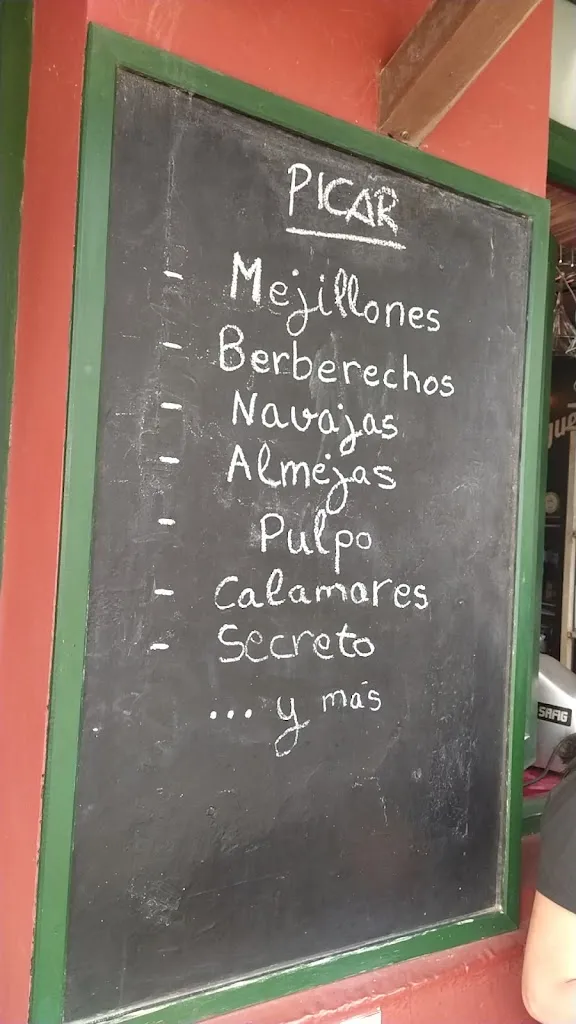 PICAR
- Mejillones
- Berberechos
- Navajas
- Almejas
- Pulpo
- Calamares
- Secreto
... y más
SAFIG